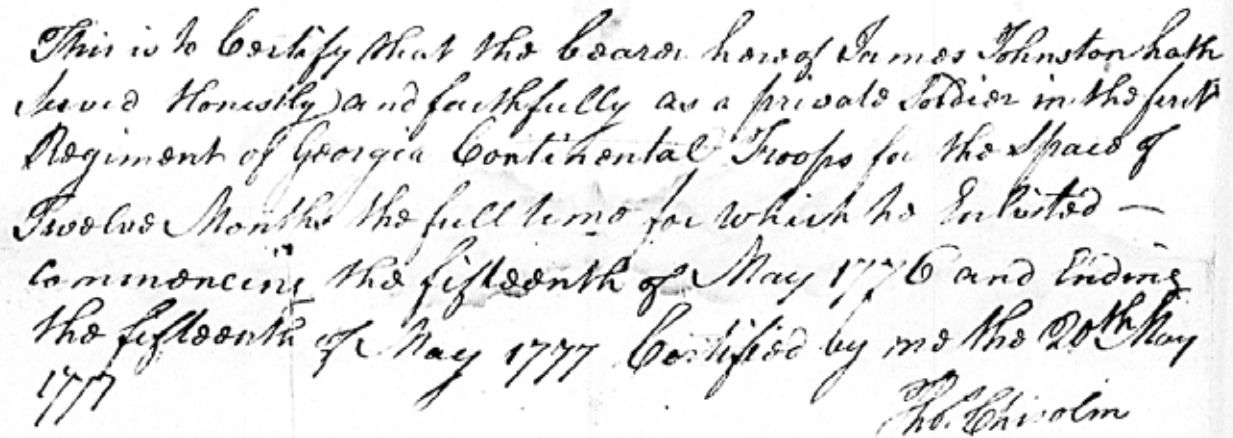 This is to Certify that the bearer hereof James Johnston hath
Served Honestly and faithfully as a private Soldier in the first
Regiment of Georgia Continental Troops for the Space of
Twelve Months the full time for which he Enlisted —
commencing the fifteenth of May 1776 and Ending
the fifteenth of May 1777 Certified by me the 20th May
1777
Tho. Chisolm